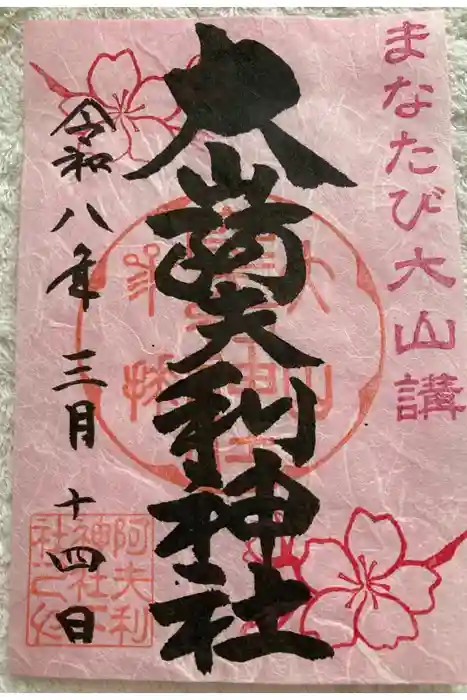 まなたび大山講
大山阿夫利神社
令和八年 三月 十四日
阿夫利
神社下
社之印